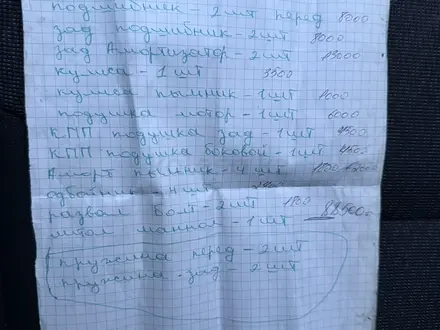 подшибник - 2 шт перед 8000
зад подшибник - 2шт 8000
зад Амортизатор - 2 шт
кулиса - 1 шт 3500
кулиса пыльник - 1 шт
подушка мотор - 1шт 6000
КПП подушка зад - 1шт 4500
КПП подушка боковой - 1шт 4500
Аморт пыльник - 4 шт
отбойник - 4 шт
развал болт - 2шт 1800 88500
литол маннол - 1 шт
пружина перед - 2 шт
пружина зад - 2 шт